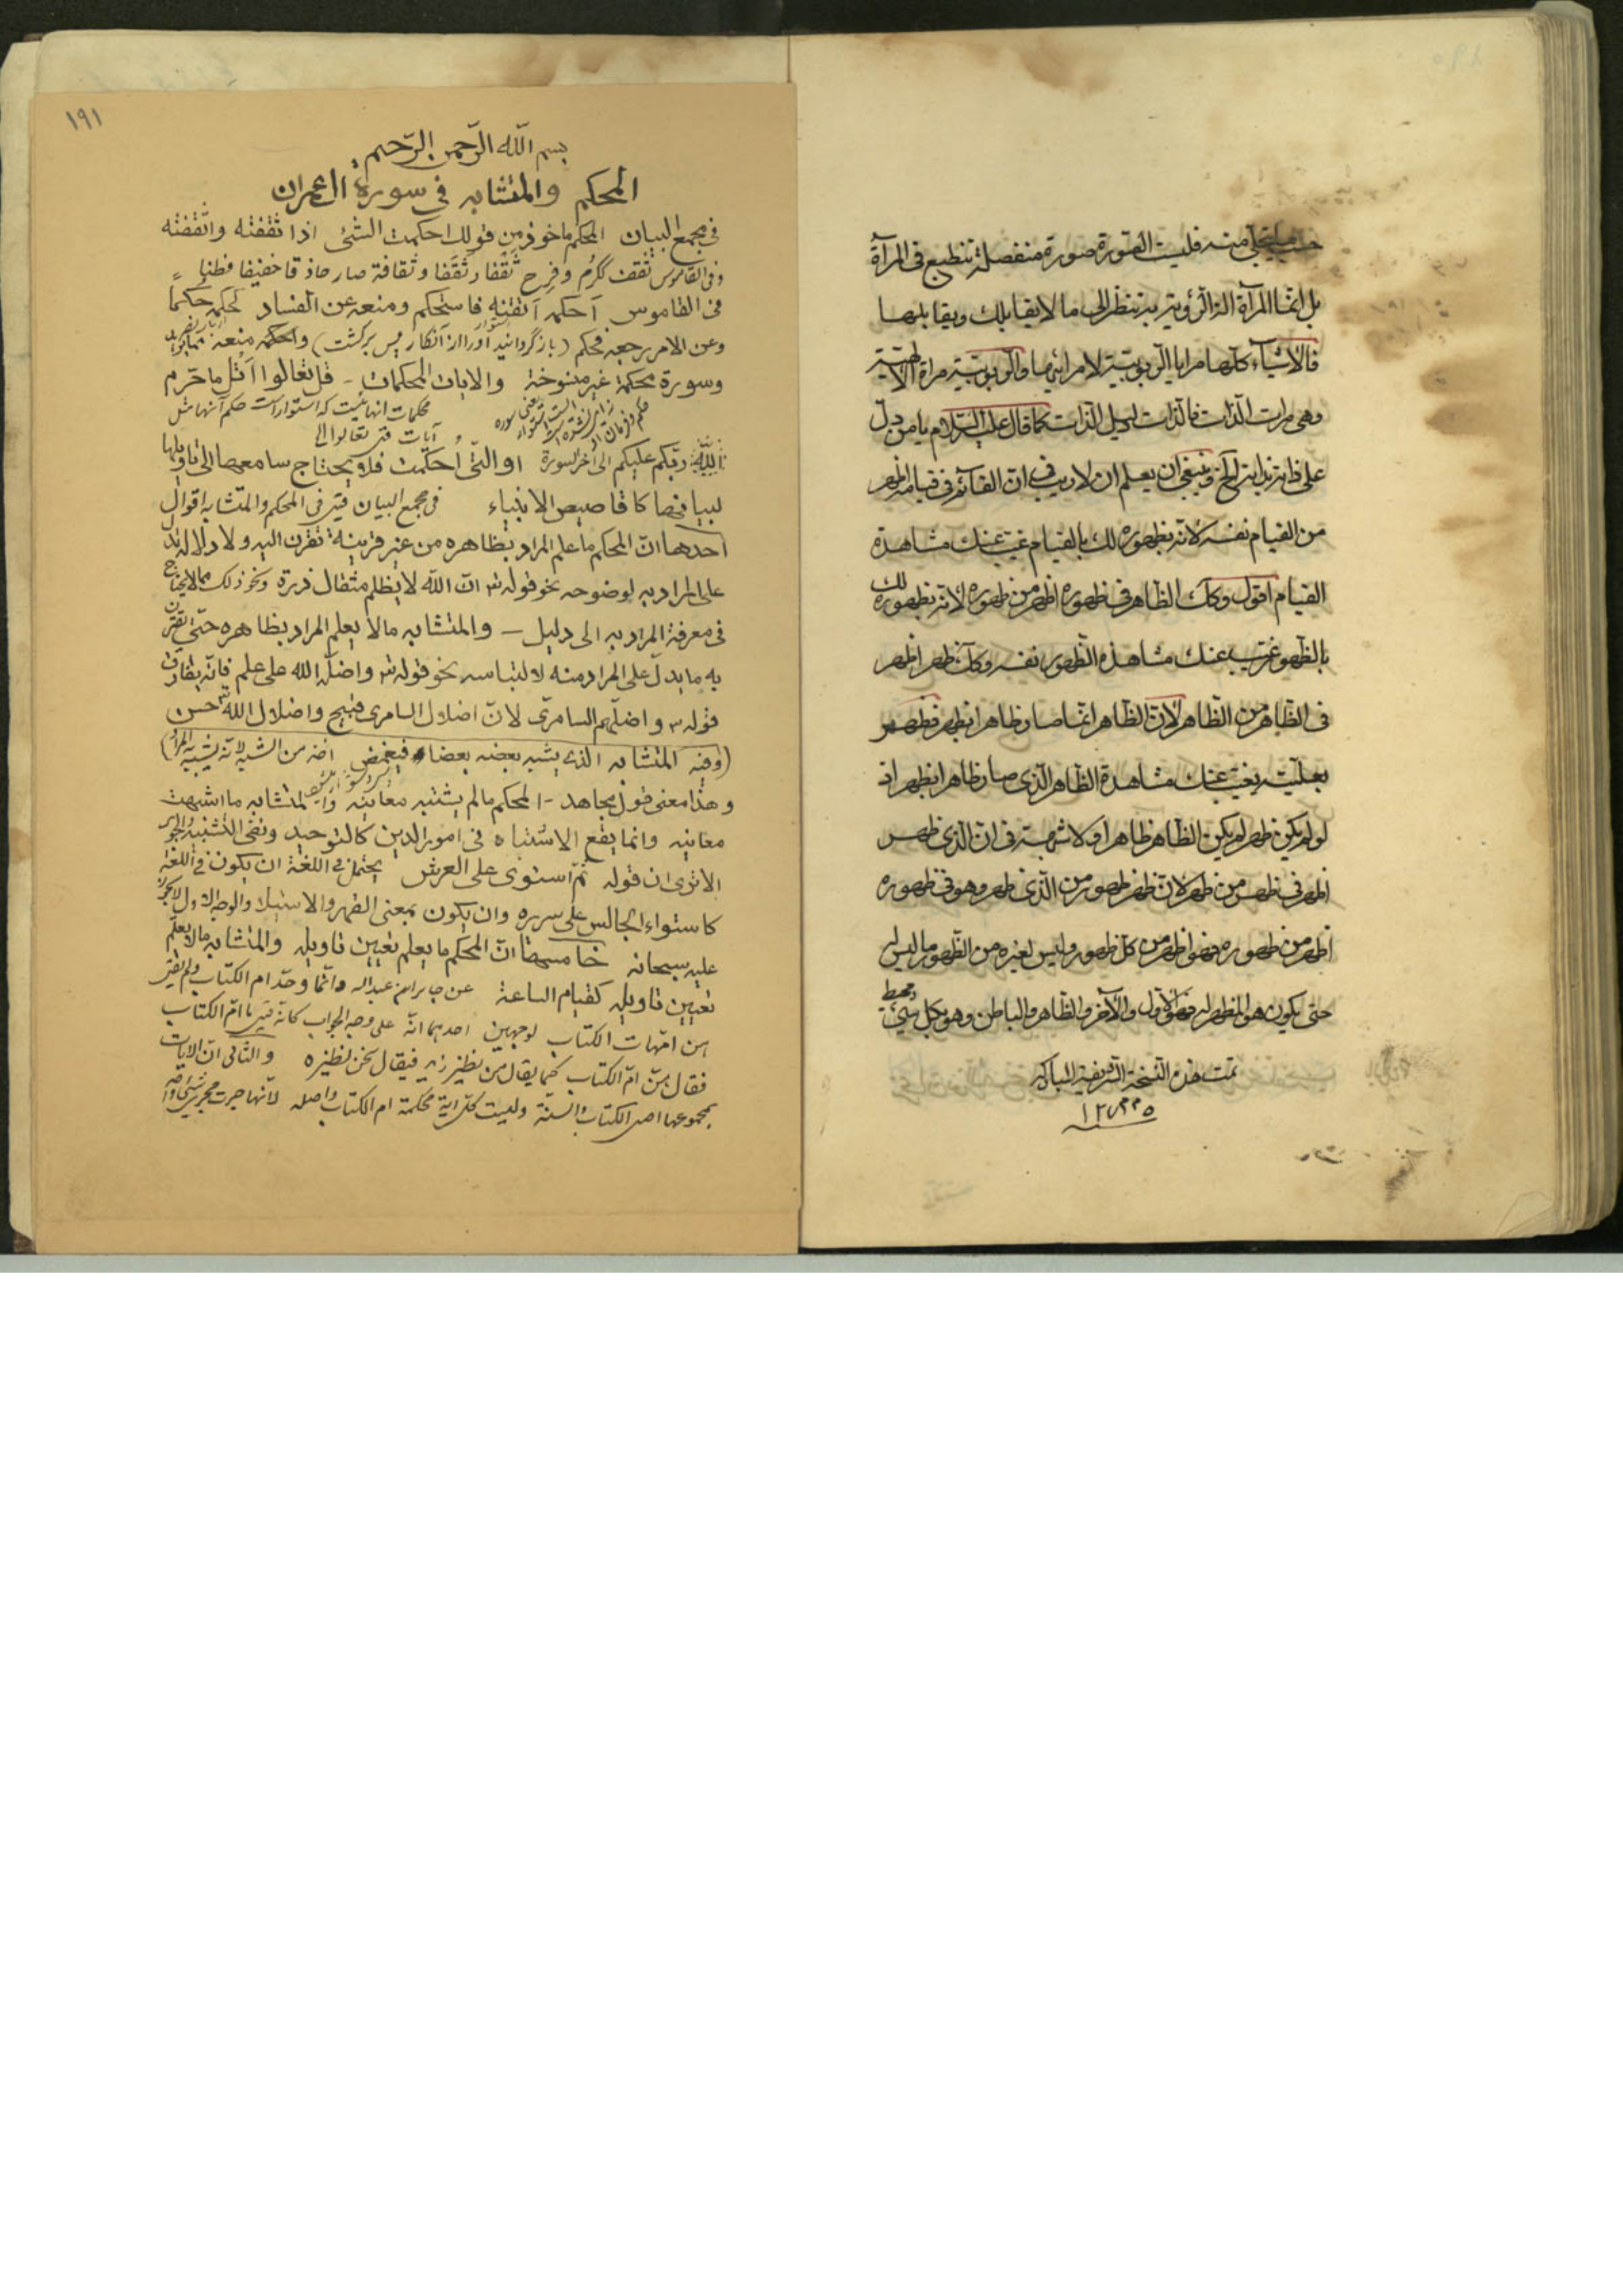 حسب ما يتجلى منه فليست الصورة صورة منفصلة تنطبع فى المرآة
بل انما المرآة آلة الرؤية بها تنظر الى ما لا يقابلك ويقابلها
فالاشياء كلها مرايا الربوبية لا مرائيها والربوبية مرآة الالهية
وهى مرآت الذات فالذات دليل الذات كما قال عليه السلام يا من دل
على ذاته بذاته الخ فينبغى ان يعلم ان لا ريب فى ان القائم فى قيامه اظهر
من القيام نفسه لانه بظهوره لك بالقيام غيب عنك مشاهدة
القيام اقول وكك الظاهر فى ظهوره اظهر من ظهوره لانه بظهوره لك
بالظهور غيب عنك مشاهدة الظهور نفسه وكك ظهر اظهر
فى الظاهر من الظاهر لان الظاهر انما صار ظاهرا بظهر فظهر
بعليته يغيب عنك مشاهدة الظاهر الذى صار ظاهرا بظهر اذ
لو لم يكن ظهر لم يكن الظاهر ظاهرا ولا شبهة فى ان الذى ظهر
اظهر فى ظهر من ظهر لان ظهر ظهور من الذى ظهر وهو فى ظهوره
اظهر من ظهوره فهو اظهر من كل ظهور وليس لغيره من الظهور ما ليس له
حتى يكون هو المظهر له فهو الاول والآخر والظاهر والباطن وهو بكل شئ محيط
تمت هذه النسخة الشريفة المباركة
١٩١
بسم الله الرحمن الرحيم
المحكم والمتشابه فى سورة ال عمران
فى مجمع البيان المحكم ماخوذ من قولك احكمت الشئ اذا ثقفته واتقنته
وفى القاموس ثقف ككرم وفرح ثقفا وثقفا وثقافة صار حاذقا خفيفا فطنا
فى القاموس احكمه اتقنه فاستحكم ومنعه عن الفساد كحكمه حكما
وعن الامر رجعه فحكم (باز گردانيد او را از آنكار پس برگشت) واحكمه منعه مما يريد
وسورة محكمة غير منسوخة والايات المحكمات - قل تعالوا اتل ما حرم
محكمات انها نيست كه استوار است حكم آنها مثل
آيات قل تعالوا الى
ربكم عليكم الى آخر السورة او التى احكمت فلا يحتاج سامعها الى تاويلها
لبيانها كاقاصيص الانبياء فى مجمع البيان قيل فى المحكم والمتشابه اقوال
احدها ان المحكم ما علم المراد بظاهره من غير قرينة تقترن اليه ولا دلالة تدل
على المراد به لوضوحه نحو قوله ان الله لا يظلم مثقال ذرة ونحو ذلك مما لا يحتاج
فى معرفة المراد به الى دليل - والمتشابه ما لا يعلم المراد بظاهره حتى يقترن
به ما يدل على المراد منه لالتباسه نحو قوله واضله الله على علم فانه يفارق
قوله واضلهم السامرى لان اضلال السامرى قبيح واضلال الله حسن
(وفيه المتشابه الذى يشبه بعضه بعضا فيغمض اخذ من الشبه لانه يشتبه به المراد)
وهذا معنى قول مجاهد - المحكم ما لم يشتبه معانيه والمتشابه ما اشتبهت
معانيه وانما يقع الاشتباه فى امور الدين كالتوحيد ونفى التشبيه والجور
الا ترى ان قوله ثم استوى على العرش يحتمل فى اللغة ان يكون
كاستواء الجالس على سريره وان يكون بمعنى القهر والاستيلاء والوجه الاول لا يجوز
عليه سبحانه خامسها ان المحكم ما يعلم تعيين تاويله والمتشابه ما لا يعلم
تعيين تاويله كقيام الساعة عن جابر ابن عبد الله وانما وحد ام الكتاب ولم يقل
هن امهات الكتاب لوجهين احدهما انه على وجه الجواب كانه قيل ما ام الكتاب
فقال هن ام الكتاب كما يقال من نظير زيد فيقال نحن نظيره والثانى ان الآيات
بمجموعها اصل الكتاب والسنة وليست كل آية محكمة ام الكتاب واصله لانها جرت مجرى شئ واحد